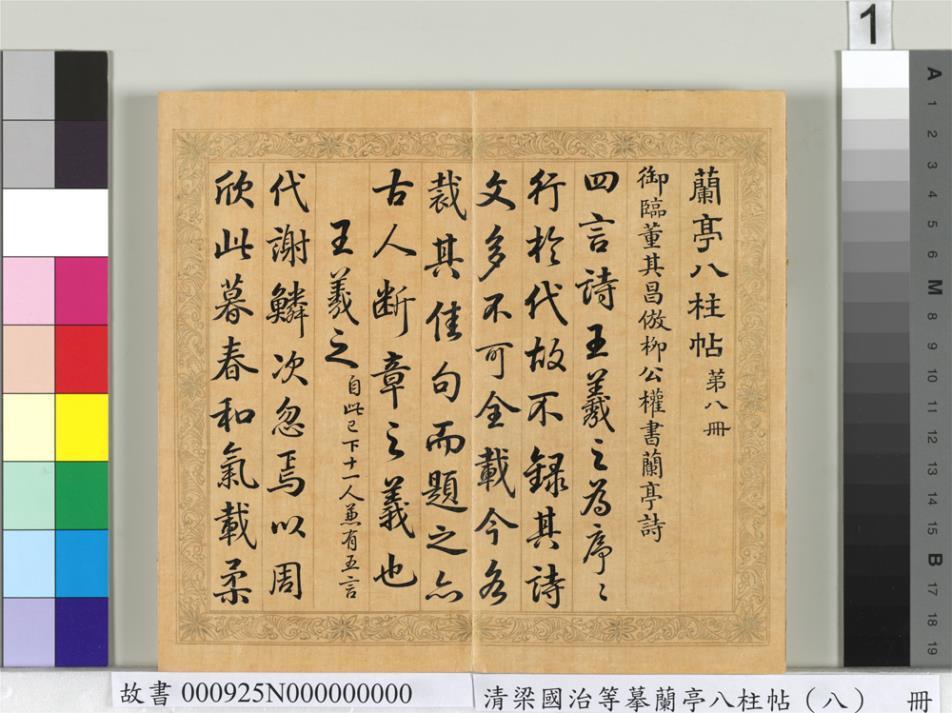 蘭亭八柱帖 第八冊
御臨董其昌倣柳公權書蘭亭詩
四言詩王羲之為序〻
行於代故不録其詩
文多不可全載今各
裁其佳句而題之亦
古人断章之義也
王羲之 自此已下十一人兼有五言
代謝鱗次忽焉以周
欣此暮春和氣載柔
1
A 1 2 3 4 5 6 M 8 9 10 11 12 13 14 15 B 17 18 19
故書 000925N000000000
清梁國治等摹蘭亭八柱帖（八） 冊